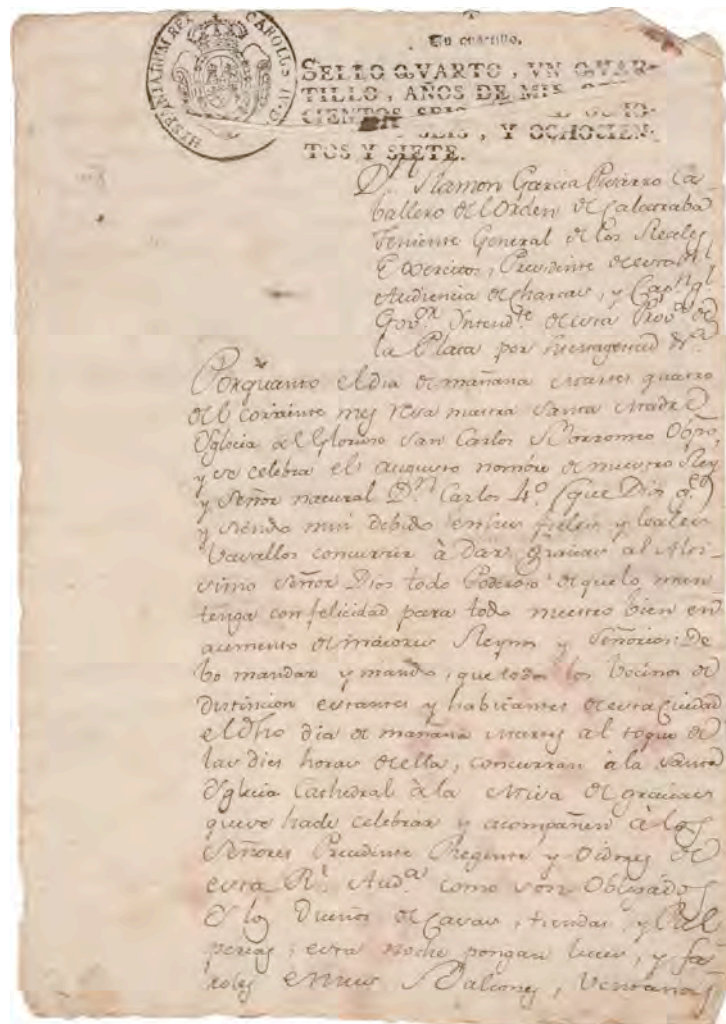 HISPANIARUM REX CAROLUS IV D
Un quartillo.
SELLO QVARTO, VN QVAR-
TILLO, AÑOS DE MIL
CIENTOS SEIS
SEIS, Y OCHOCIEN-
TOS Y SIETE.
Dn. Ramon Garcia Pizarro Ca
ballero del Orden de Calatraba
Teniente General de los Reales
Exercitos, Presidente de esta Rl
Audiencia de charcas, y Capn. Gl
Govor. Intendte. de esta Prova. de
la Plata por su magestad &a.
Porquanto el dia de mañana martes quatro
del corriente mes resa nuestra santa madre
Yglecia del Glorioso San Carlos Borromeo Obpo,
y se celebra el augusto nombre de nuestro Rey
y Señor natural Dn. Carlos 4o. (que Dios ge)
y siendo mui debido en sus fieles y leales
Vasallos concurrir à Dar gracias al Altí-
simo Señor Dios todo Poderoso de que lo man
tenga con felicidad para todo nuestro bien en
aumento de maiores Reynos y Señorios: De
bo mandar y mando, que todos los Vecinos de
Distincion estantes y habitantes de esta Ciudad
el dho dia de mañana martes al toque de
las dies horas de ella, concurran à la santa
Yglecia Cathedral à la Misa de gracias
que se hade celebrar y acompañen à los
Señores Presidente Regente y Oidores de
esta Rl. Auda. como son Obligados
Y los Dueños de Casas, tiendas, y Pul
perias, esta noche pongan luces, y fa
roles en sus Balcones, Ventanas